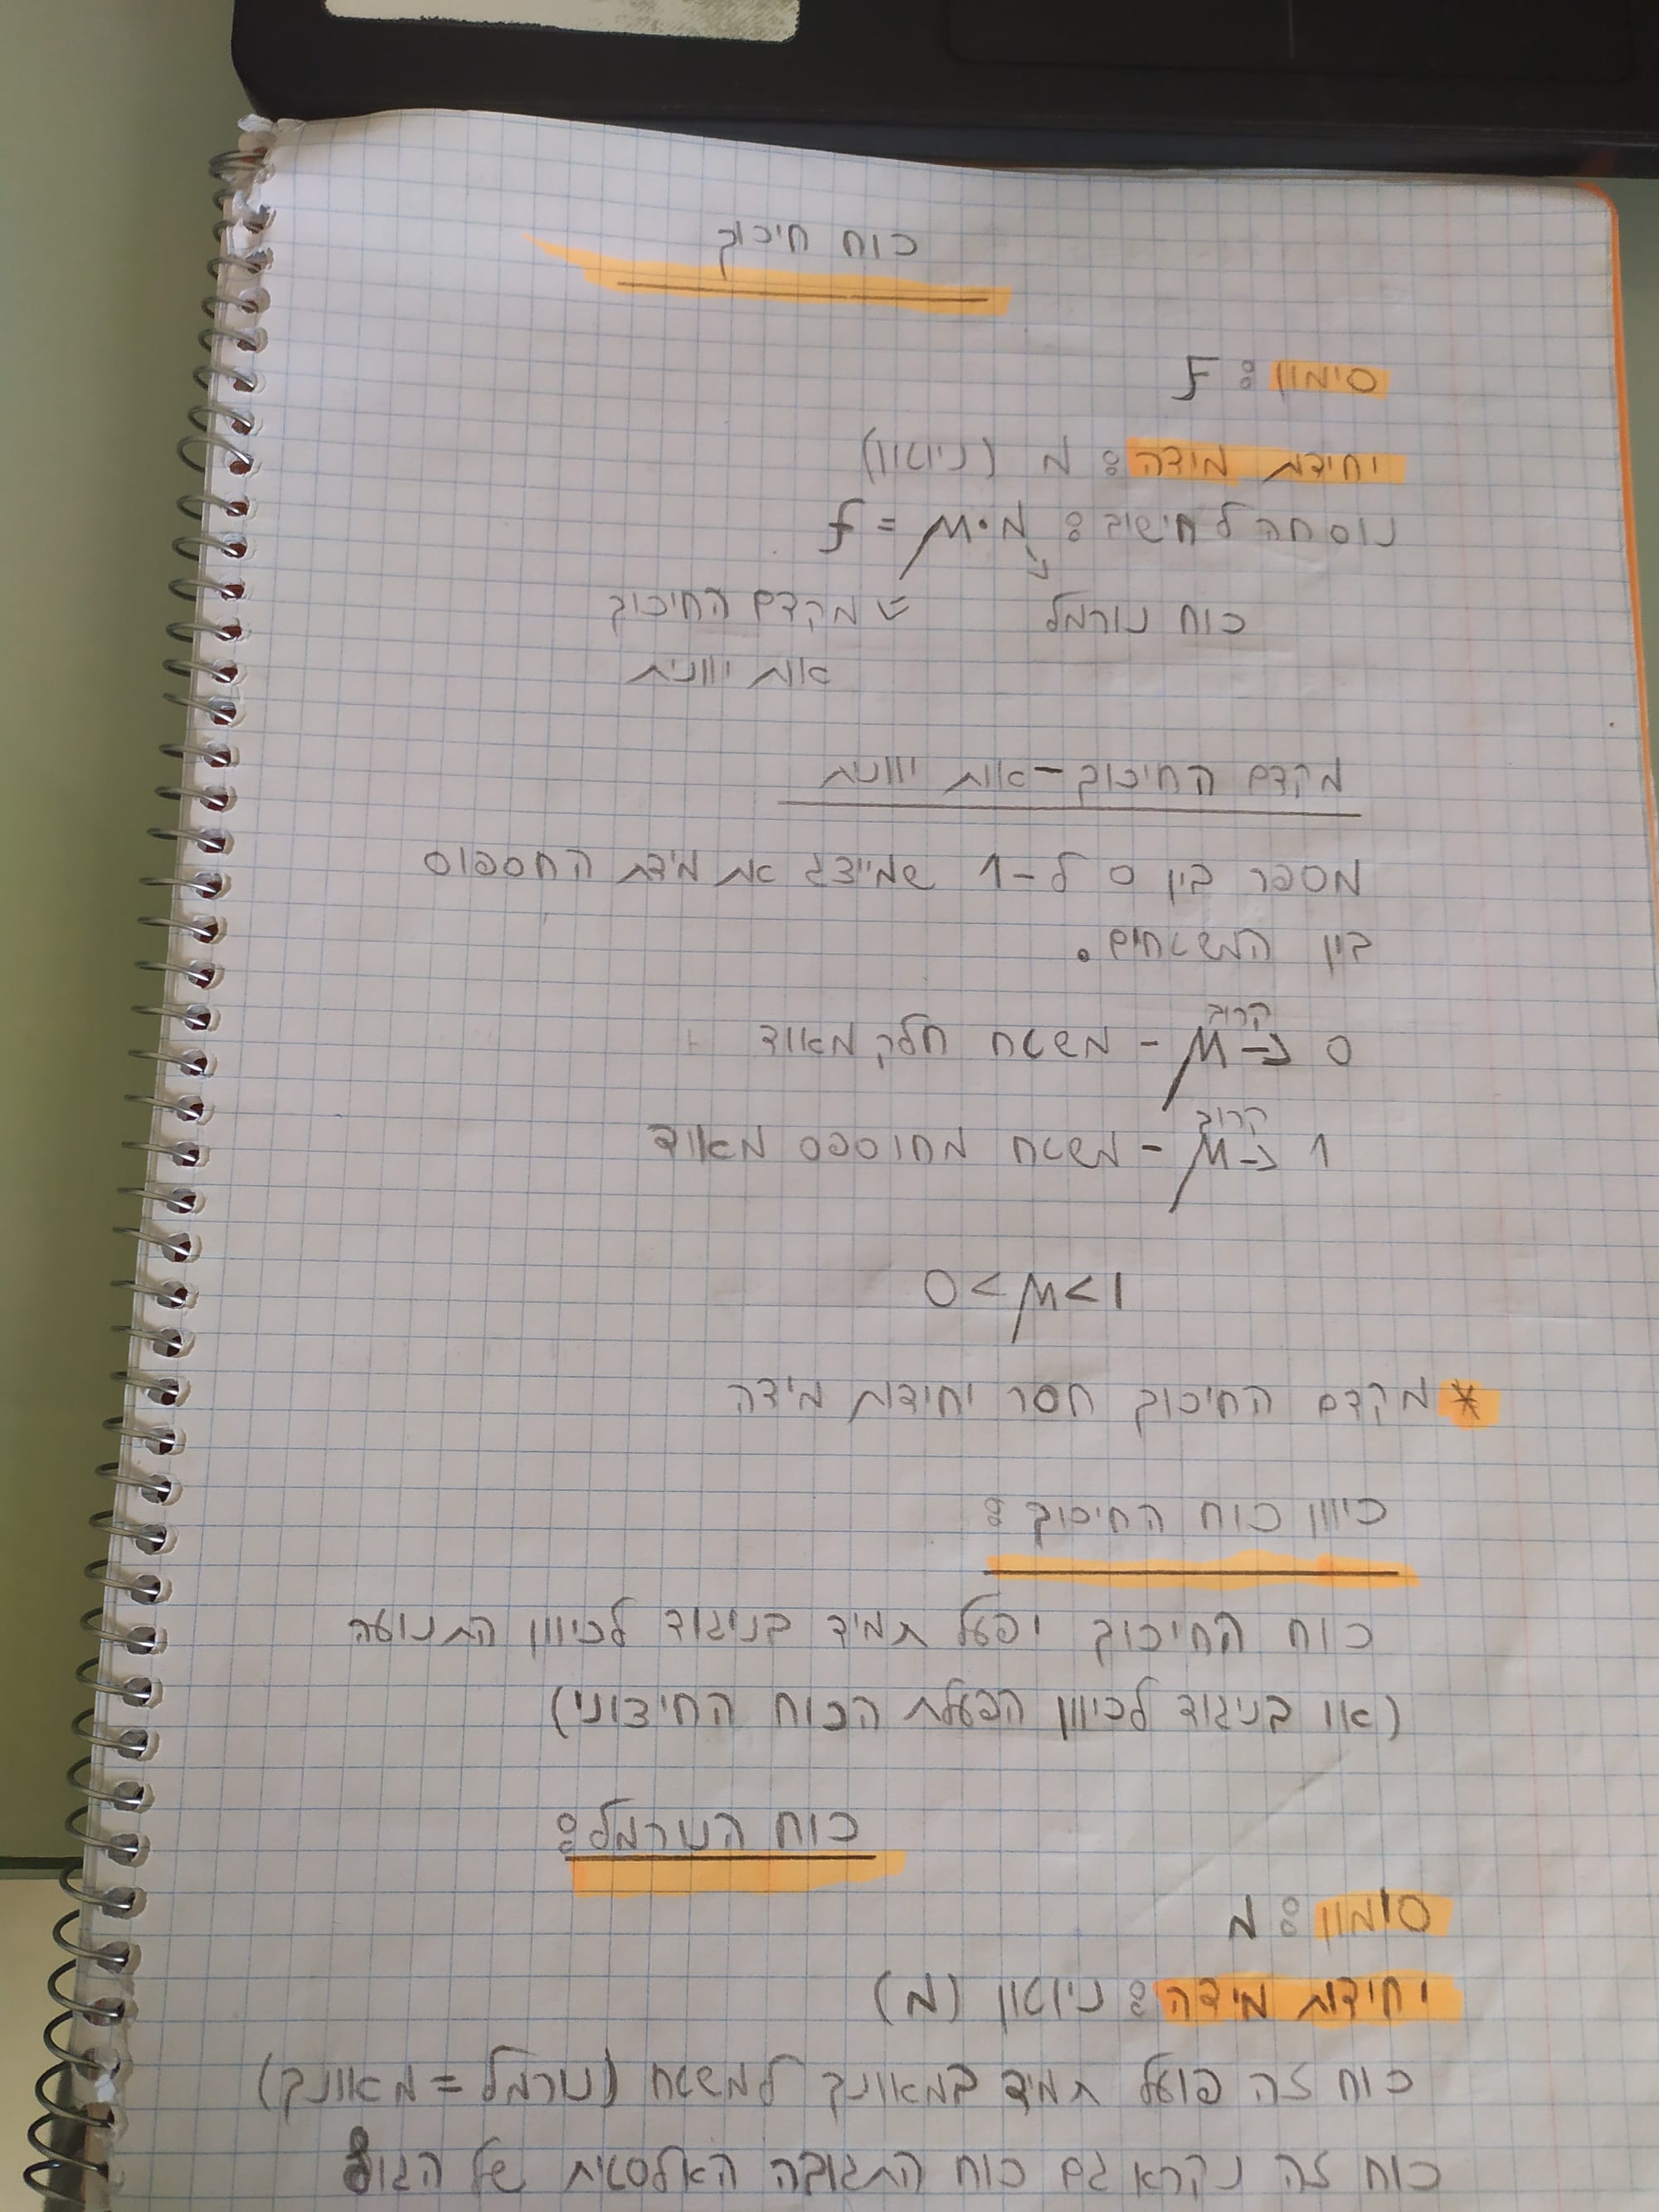 כוח חיכוך
סימון: f
יחידת מידה: N (ניוטון)
נוסחה לחישוב: f = μ·N
כוח נורמל = מקדם החיכוך
אות יוונית
מקדם החיכוך – אות יוונית
מספר בין 0 ל-1 שמייצג את מידת החספוס
בין המשטחים.
קרוב
0 ל-μ - משטח חלק מאוד
קרוב
1 ל-μ - משטח מחוספס מאוד
0<μ<1
* מקדם החיכוך חסר יחידות מידה
כיוון כוח החיכוך:
כוח החיכוך יפעל תמיד בניגוד לכיוון התנועה
(או בניגוד לכיוון הפעלת הכוח החיצוני)
כוח הנורמל:
סימון: N
יחידות מידה: ניוטון (N)
כוח זה פועל תמיד במאונך למשטח (נורמל = מאונך)
כוח זה נקרא גם כוח התגובה האלסטית של הגוף